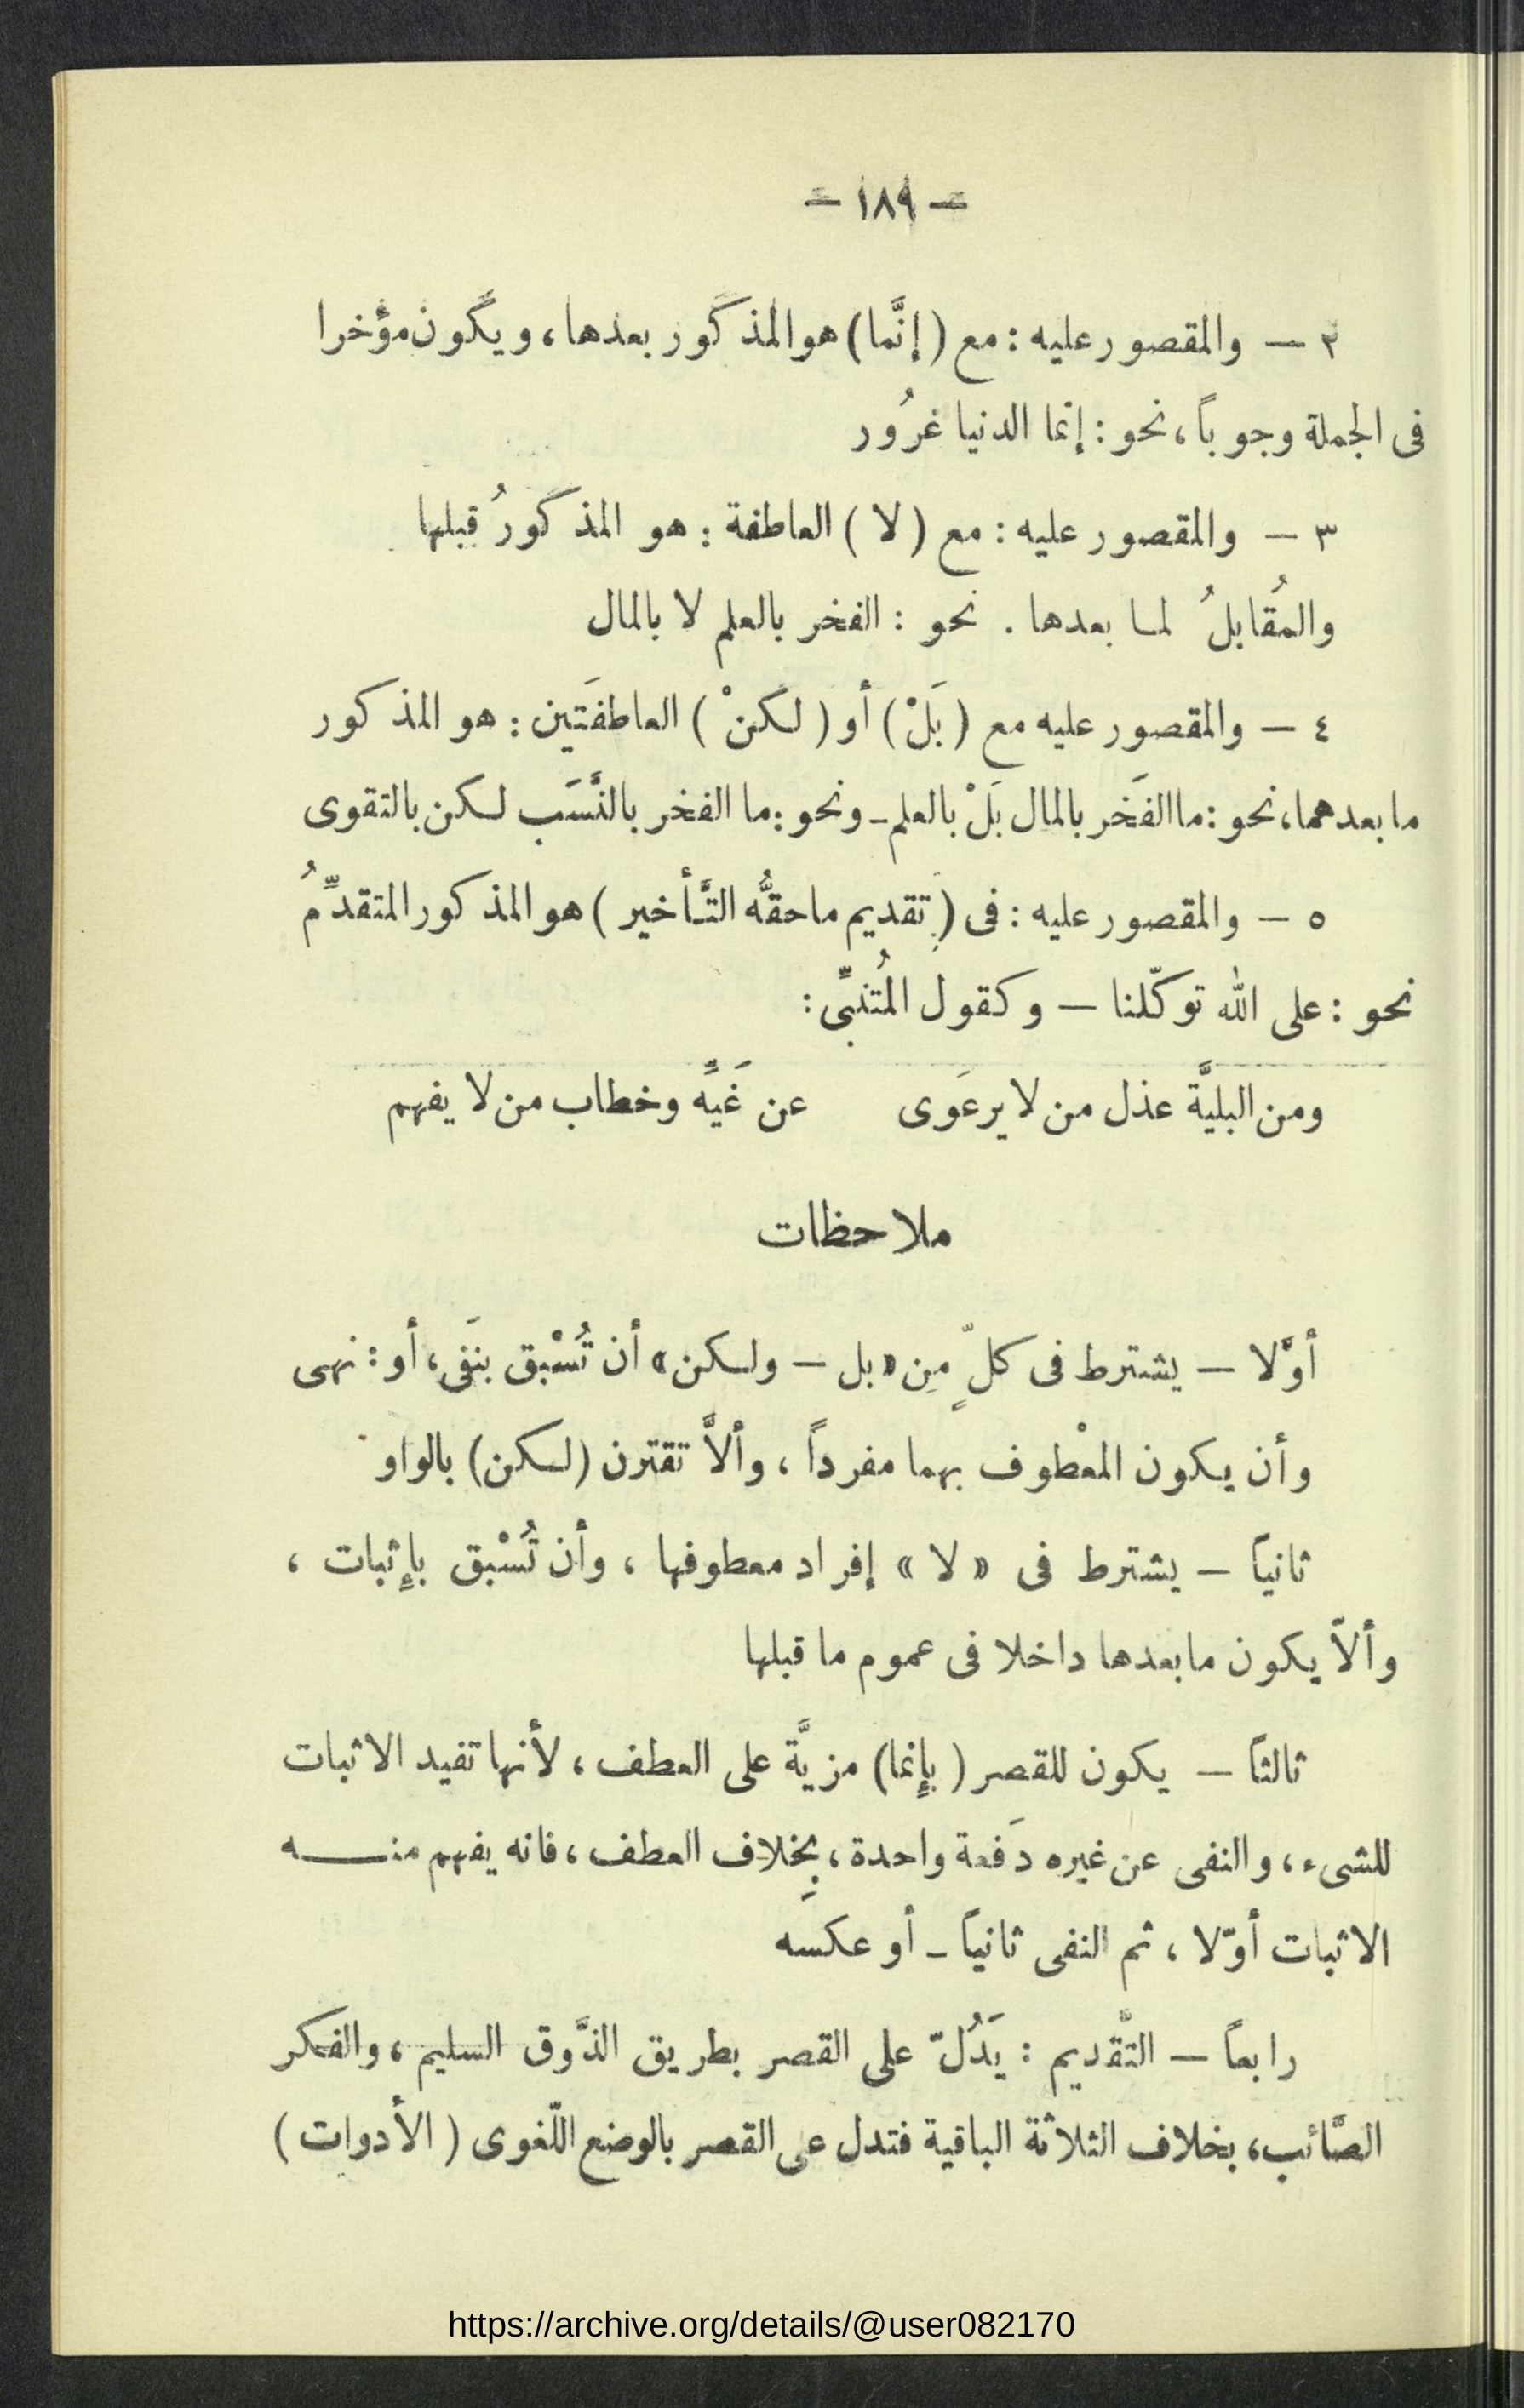 — ١٨٩ —
٢ — والمقصور عليه : مع ( إنَّما ) هو المذكور بعدها ، ويكون مؤخرا
فى الجملة وجوباً ، نحو : إنما الدنيا غرُور
٣ — والمقصور عليه : مع ( لا ) العاطفة : هو المذكورُ قبلها
والمُقابلُ لما بعدها . نحو : الفخر بالعلم لا بالمال
٤ — والمقصور عليه مع ( بَلْ ) أو ( لكنْ ) العاطفَتين : هو المذكور
ما بعدهما ، نحو : ما الفَخر بالمال بَلْ بالعلم ـ ونحو : ما الفخر بالنَّسَب لكن بالتقوى
٥ — والمقصور عليه : فى ( تقديم ما حقُّه التَّأخير ) هو المذكور المتقدِّمُ
نحو : على الله توكّلنا — وكقول المُتنبِّى :
ومن البليَّة عذل من لا يرعَوى عن غَيِّه وخطاب من لا يفهم
ملاحظات
أوّلا — يشترط فى كلّ مِن « بل — ولكن » أن تُسْبق بنَفى ، أو : نهى
وأن يكون المعْطوف بهما مفرداً ، وألاَّ تقترن ( لكن ) بالواو
ثانياً — يشترط فى « لا » إفراد معطوفها ، وأن تُسْبق بإثبات ،
وألاّ يكون ما بعدها داخلا فى عموم ما قبلها
ثالثاً — يكون للقصر ( بإنما ) مزيَّة على العطف ، لأنها تفيد الاثبات
للشىء ، والنفى عن غيره دَفعة واحدة ، بِخلاف العطف ، فانه يفهم منـــه
الاثبات أوّلا ، ثم النفى ثانياً ـ أو عكسه
رابعاً — التّقديم : يَدُلّ على القصر بطريق الذَّوق السليم ، والفكر
الصَّائب ، بخلاف الثلاثة الباقية فتدل على القصر بالوضع اللّغوى ( الأدوات )
https://archive.org/details/@user082170